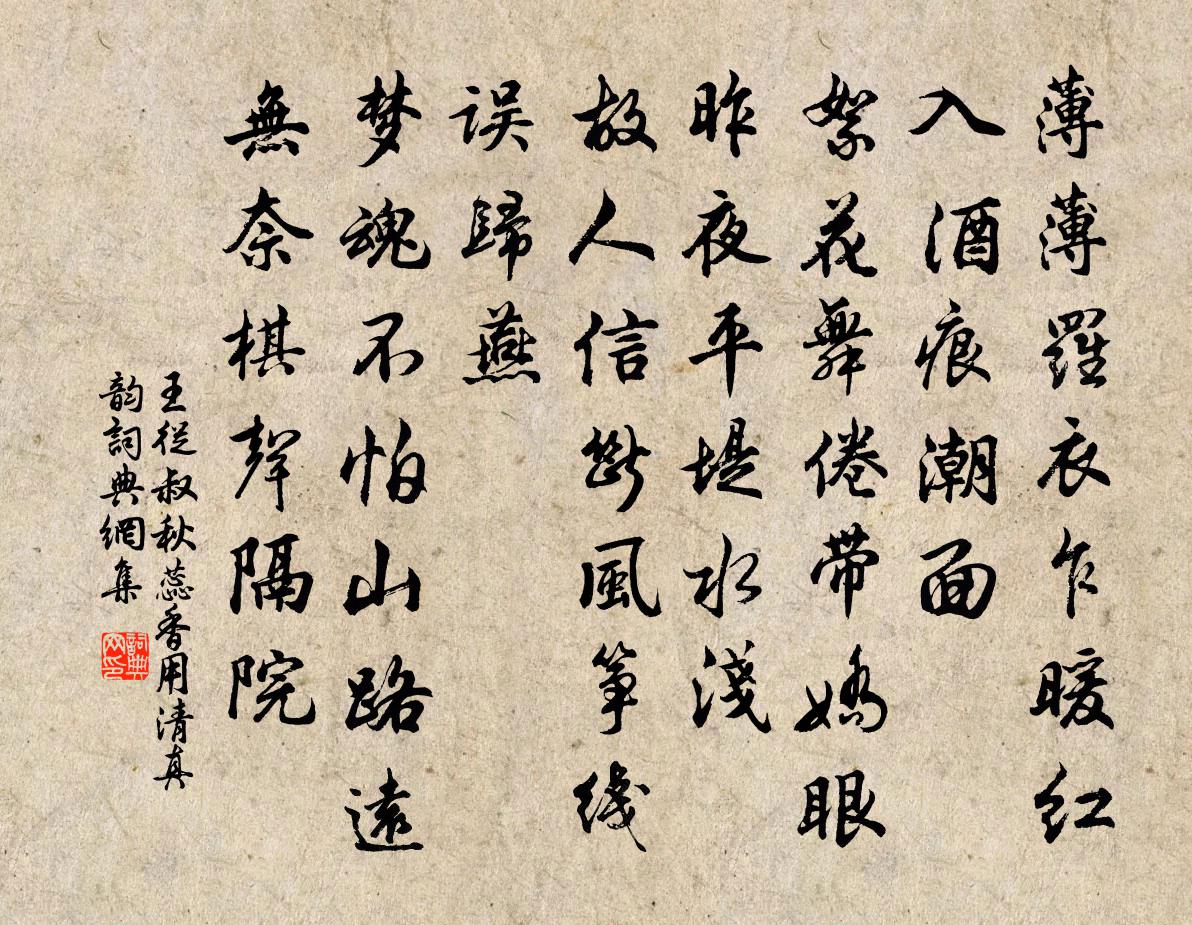 薄薄羅衣乍暖紅
入酒痕潮面
絮花舞倦帶嬌眼
昨夜平堤水淺
故人信斷風箏线
误歸燕
梦魂不怕山路遠
無奈棋聲隔院
王從叔秋蕊香用清真
韵詞典網集
詞典网印